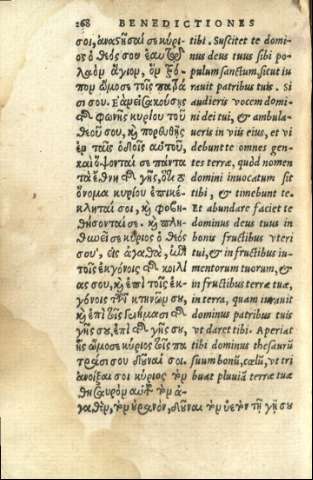 268 BENEDICTIONES
σοι, ἀναςῆσαί σε κύρι-
ος ὁ θεός σου ἑαυτῷ
λαὸν ἅγιον, ὃν
ὤμοσε τοῖς πατρά
σι σου. Ἐὰν εἰσακούσῃς
τῆς φωνῆς κυρίου τοῦ
θεοῦ σου, καὶ πορευθῇς
ἐν ταῖς ὁδοῖς αὐτοῦ,
καὶ ὄψονταί σε πάντα
τὰ ἔθνη τῆς γῆς, ὅτι τὸ
ὄνομα κυρίου ἐπικέ-
κληταί σοι, καὶ φοβη-
θήσονταί σε. καὶ πλη-
θυνεῖ σε κύριος ὁ θεός
σου, εἰς ἀγαθὰ, ἐπὶ
τοῖς ἐκγόνοις τῆς κοιλί
ας σου, καὶ ἐπὶ τοῖς ἐκ-
γόνοις τῶν κτηνῶν σου,
καὶ ἐπὶ τοῖς γεννήμασι τῆς
γῆς σου, ἐπὶ τῆς γῆς σου,
ἧς ὤμοσε κύριος τοῖς πα
τράσι σου δοῦναί σοι.
ἀνοίξαι σοι κύριος τὸν
θησαυρὸν αὐτοῦ τὸν ἀ-
γαθὸν, τὸν οὐρανὸν, δοῦναι τὸν ὑετὸν τῇ γῇ σου
tibi. Suscitet te domi-
nus deus tuus sibi po-
pulum sanctum, sicut iu
rauit patribus tuis. Si
audieris vocem domi-
ni dei tui, & ambula-
ueris in viis eius, et vi
debunt te omnes gen-
tes terræ, quòd nomen
domini inuocatum sit
tibi, & timebunt te.
Et abundare faciet te
dominus deus tuus in
bonū fructibus vteri
tui, & in fructibus iu-
mentorum tuorum, &
in fructibus terræ tuæ,
in terra, quam iurauit
dominus patribus tuis
vt daret tibi. Aperiat
tibi dominus thesaurū
suum bonū, cælū, vt tri
buat pluuiā terræ tuæ